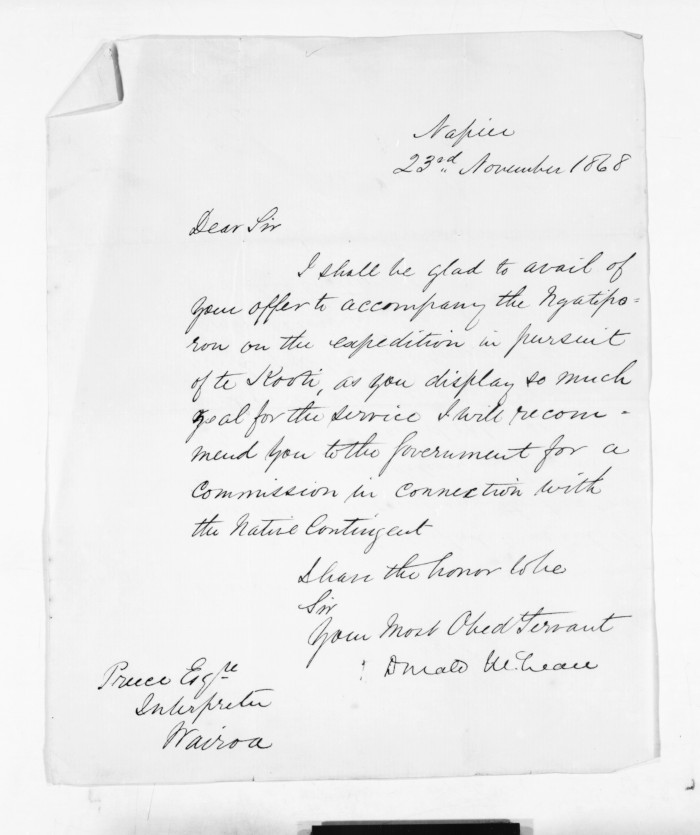 Napier
23rd. November 1868
Dear Sir
I shall be glad to avail of
your offer to accompany the Ngatipo=
rou on the expedition in pursuit
of te Kooti, as you display so much
zeal for the service I will recom-
mend you to the Government for a
Commission in connection with
the Native Contingent
I have the honor to be
Sir
Your Most Obed Servant
Donald McLean
Preece Esqre
Interpreter
Wairoa